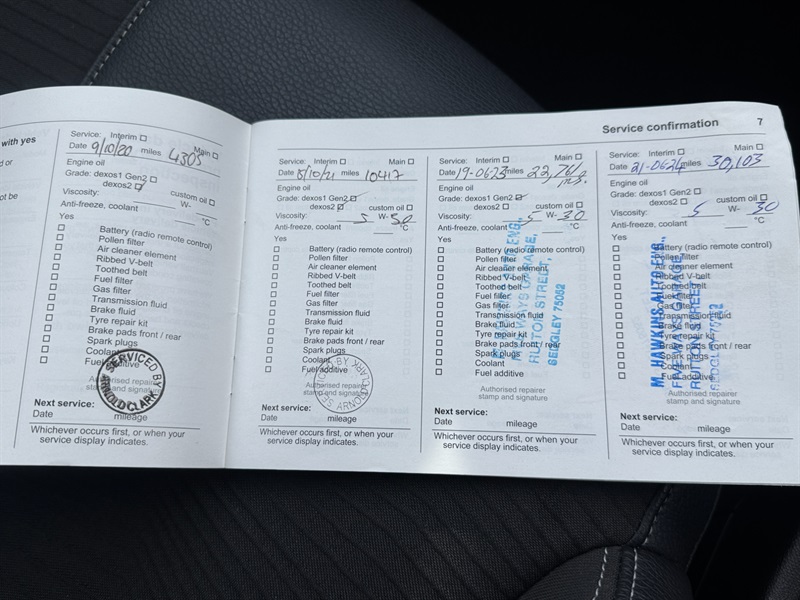 with yes
d or
ot be
Service: Interim
Main
Date 9/10/20 miles 4305
Engine oil
Grade: dexos1 Gen2
dexos2
custom oil
Viscosity: W-
Anti-freeze, coolant °C
Yes
Battery (radio remote control)
Pollen filter
Air cleaner element
Ribbed V-belt
Toothed belt
Fuel filter
Gas filter
Transmission fluid
Brake fluid
Tyre repair kit
Brake pads front / rear
Spark plugs
Coolant
Fuel additive
SERVICED BY
ARNOLD CLARK
Authorised repairer
stamp and signature
Next service:
Date mileage
Whichever occurs first, or when your
service display indicates.
Service confirmation 7
Service: Interim Main
Date 8/10/21 miles 10417
Engine oil
Grade: dexos1 Gen2
dexos2 custom oil
Viscosity: 5 W- 30
Anti-freeze, coolant °C
Yes
Battery (radio remote control)
Pollen filter
Air cleaner element
Ribbed V-belt
Toothed belt
Fuel filter
Gas filter
Transmission fluid
Brake fluid
Tyre repair kit
Brake pads front / rear
Spark plugs
Coolant
Fuel additive
Authorised repairer
stamp and signature
Next service:
Date mileage
Whichever occurs first, or when your
service display indicates.
Service: Interim Main
Date 19-06-23 miles 22,761
Engine oil
Grade: dexos1 Gen2
dexos2 custom oil
Viscosity: 5 W- 30
Anti-freeze, coolant °C
Yes
Battery (radio remote control)
Pollen filter
Air cleaner element
Ribbed V-belt
Toothed belt
Fuel filter
Gas filter
Transmission fluid
Brake fluid
Tyre repair kit
Brake pads front / rear
Spark plugs
Coolant
Fuel additive
GARAGE,
RUITON STREET,
SEDGLEY 75062
Authorised repairer
stamp and signature
Next service:
Date mileage
Whichever occurs first, or when your
service display indicates.
Service: Interim Main
Date 21-06-24 miles 30,103
Engine oil
Grade: dexos1 Gen2
dexos2 custom oil
Viscosity: 5 W- 30
Anti-freeze, coolant °C
Yes
Battery (radio remote control)
Pollen filter
Air cleaner element
Ribbed V-belt
Toothed belt
Fuel filter
Gas filter
Transmission fluid
Brake fluid
Tyre repair kit
Brake pads front / rear
Spark plugs
Coolant
Fuel additive
M. HAWKINS AUTO ENG.
FIVEWAYS GARAGE
RUITON STREET
SEDGLEY
Authorised repairer
stamp and signature
Next service:
Date mileage
Whichever occurs first, or when your
service display indicates.